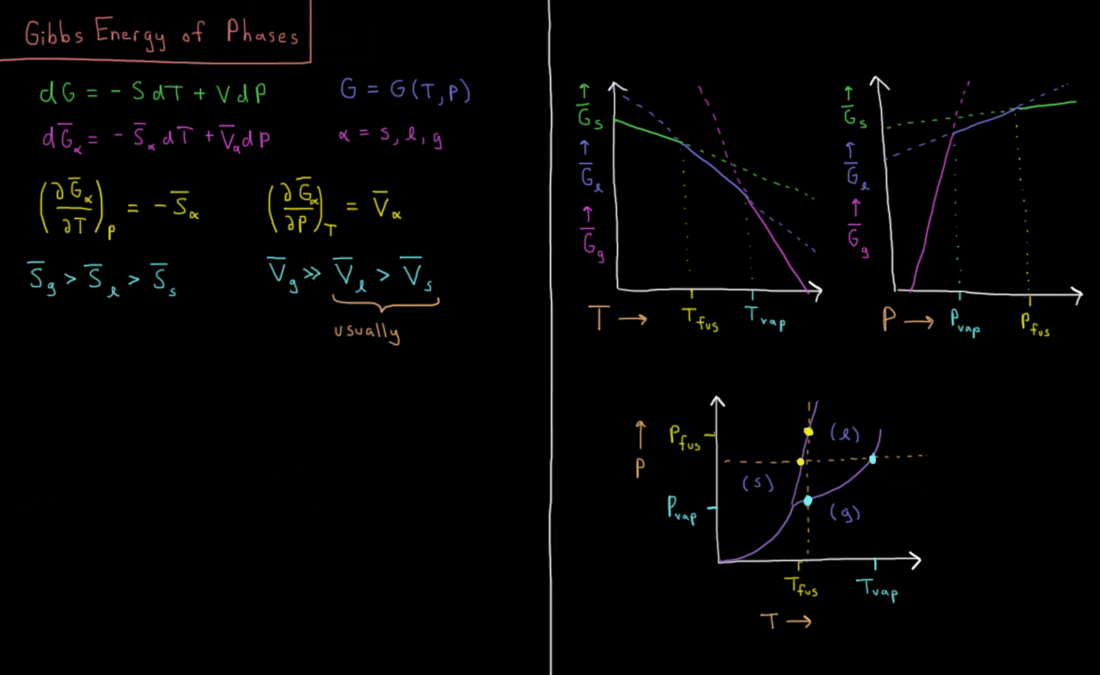 Gibbs Energy of Phases
dG = - SdT + VdP
G = G(T,P)
dG̅α = - S̅α dT + V̅α dP
α = s, l, g
(∂G̅α/∂T)P = - S̅α
(∂G̅α/∂P)T = V̅α
S̅g > S̅l > S̅s
V̅g ≫ V̅l > V̅s
usually
↑ G̅s
↑ G̅l
↑ G̅g
T → Tfus Tvap
↑ G̅s
↑ G̅l
↑ G̅g
P → Pvap Pfus
Pfus
↑ P
(l)
(s)
Pvap
(g)
Tfus Tvap
T →